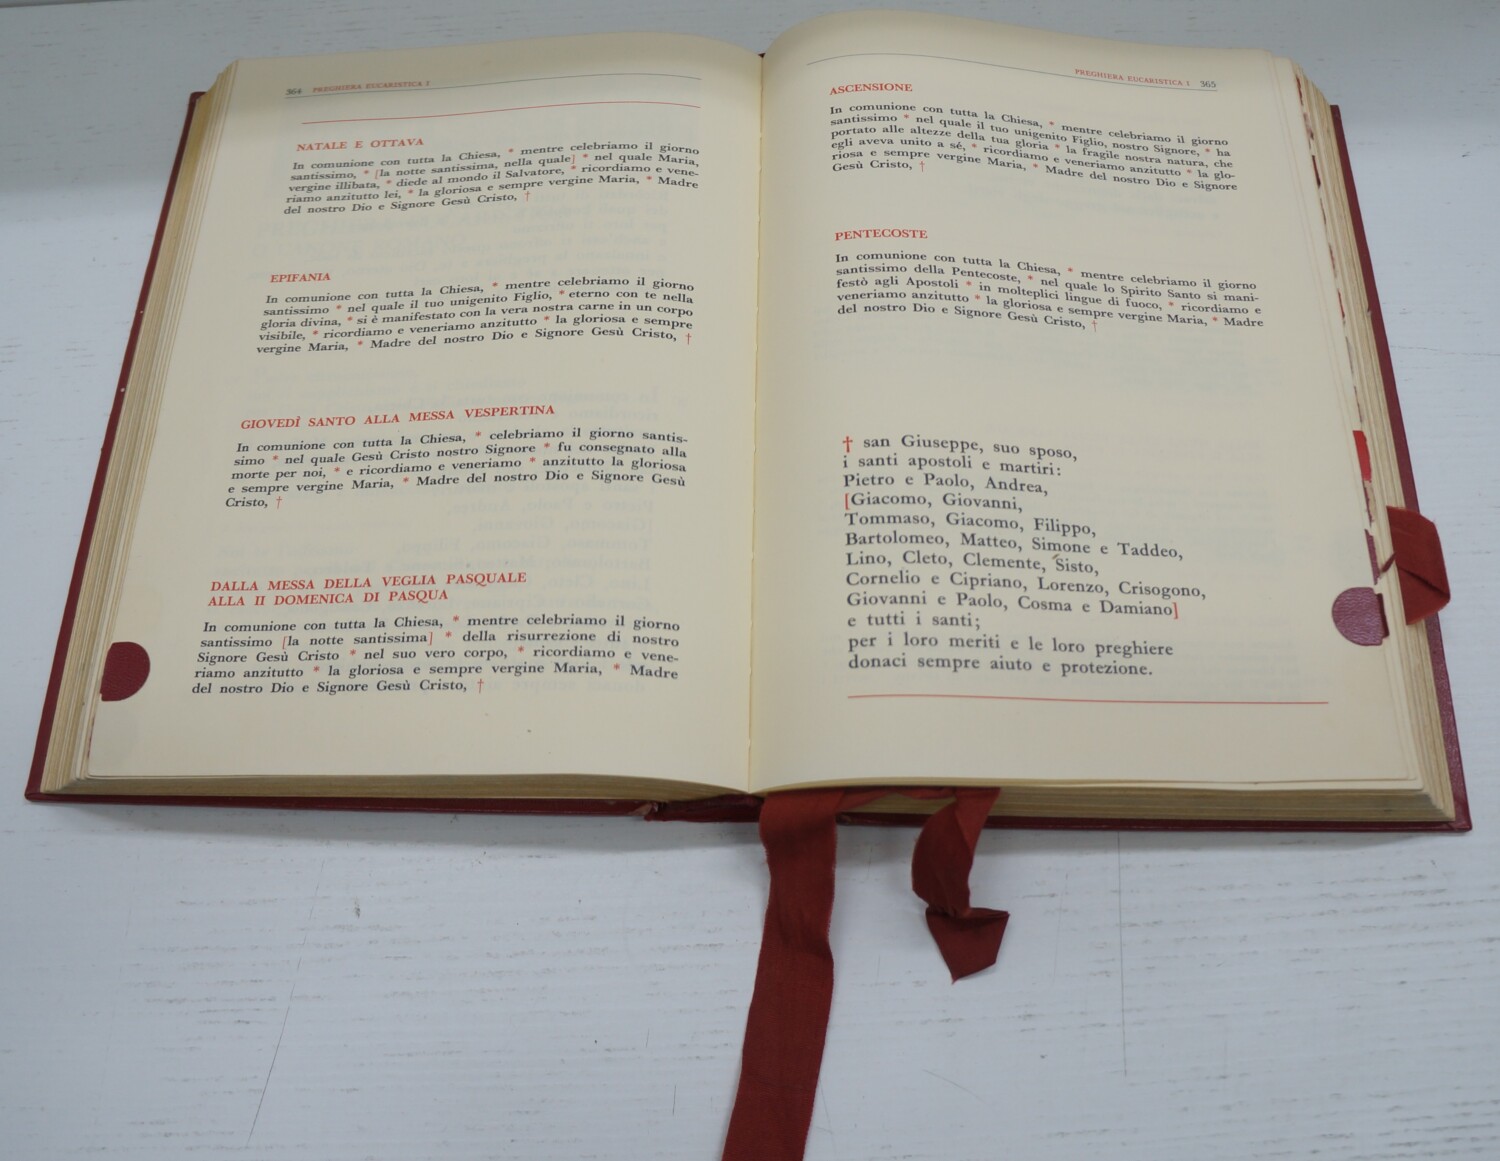 364 PREGHIERA EUCARISTICA I
NATALE E OTTAVA
In comunione con tutta la Chiesa, * mentre celebriamo il giorno
santissimo, * [la notte santissima, nella quale] * nel quale Maria,
vergine illibata, * diede al mondo il Salvatore, * ricordiamo e vene-
riamo anzitutto lei, * la gloriosa e sempre vergine Maria, * Madre
del nostro Dio e Signore Gesù Cristo, †
EPIFANIA
In comunione con tutta la Chiesa, * mentre celebriamo il giorno
santissimo * nel quale il tuo unigenito Figlio, * eterno con te nella
gloria divina, * si è manifestato con la vera nostra carne in un corpo
visibile, * ricordiamo e veneriamo anzitutto * la gloriosa e sempre
vergine Maria, * Madre del nostro Dio e Signore Gesù Cristo, †
GIOVEDÌ SANTO ALLA MESSA VESPERTINA
In comunione con tutta la Chiesa, * celebriamo il giorno santis-
simo * nel quale Gesù Cristo nostro Signore * fu consegnato alla
morte per noi, * e ricordiamo e veneriamo * anzitutto la gloriosa
e sempre vergine Maria, * Madre del nostro Dio e Signore Gesù
Cristo, †
DALLA MESSA DELLA VEGLIA PASQUALE
ALLA II DOMENICA DI PASQUA
In comunione con tutta la Chiesa, * mentre celebriamo il giorno
santissimo [la notte santissima] * della risurrezione di nostro
Signore Gesù Cristo * nel suo vero corpo, * ricordiamo e vene-
riamo anzitutto * la gloriosa e sempre vergine Maria, * Madre
del nostro Dio e Signore Gesù Cristo, †
PREGHIERA EUCARISTICA I 365
ASCENSIONE
In comunione con tutta la Chiesa, * mentre celebriamo il giorno
santissimo * nel quale il tuo unigenito Figlio, nostro Signore, * ha
portato alle altezze della tua gloria * la fragile nostra natura, che
egli aveva unito a sé, * ricordiamo e veneriamo anzitutto * la glo-
riosa e sempre vergine Maria, * Madre del nostro Dio e Signore
Gesù Cristo, †
PENTECOSTE
In comunione con tutta la Chiesa, * mentre celebriamo il giorno
santissimo della Pentecoste, * nel quale lo Spirito Santo si mani-
festò agli Apostoli * in molteplici lingue di fuoco, * ricordiamo e
veneriamo anzitutto * la gloriosa e sempre vergine Maria, * Madre
del nostro Dio e Signore Gesù Cristo, †
† san Giuseppe, suo sposo,
i santi apostoli e martiri:
Pietro e Paolo, Andrea,
[Giacomo, Giovanni,
Tommaso, Giacomo, Filippo,
Bartolomeo, Matteo, Simone e Taddeo,
Lino, Cleto, Clemente, Sisto,
Cornelio e Cipriano, Lorenzo, Crisogono,
Giovanni e Paolo, Cosma e Damiano]
e tutti i santi;
per i loro meriti e le loro preghiere
donaci sempre aiuto e protezione.